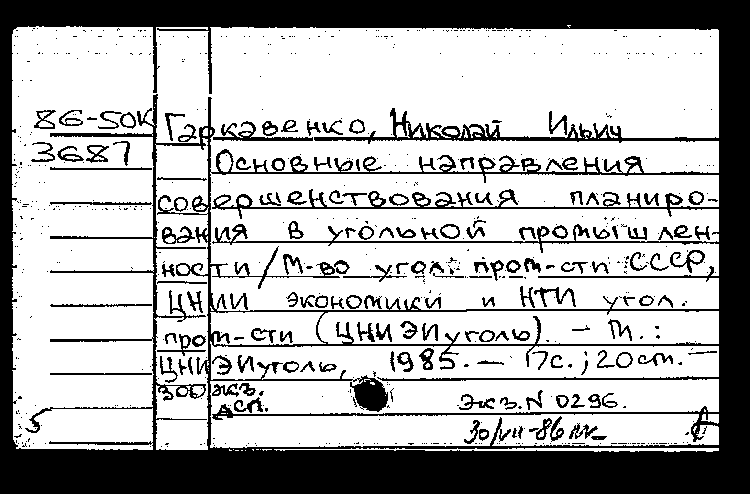 86-50К Гаркавенко, Николай Ильич
3687 Основные направления
совершенствования планиро-
вания в угольной промышлен-
ности / М-во угол. пром-сти СССР,
ЦНИИ экономики и НТИ угол.
пром-сти (ЦНИЭИуголь). — М.:
ЦНИЭИуголь, 1985. — 17с.; 20см. —
300 экз.
Дсп. Экз. N 0296.
30/VII-86